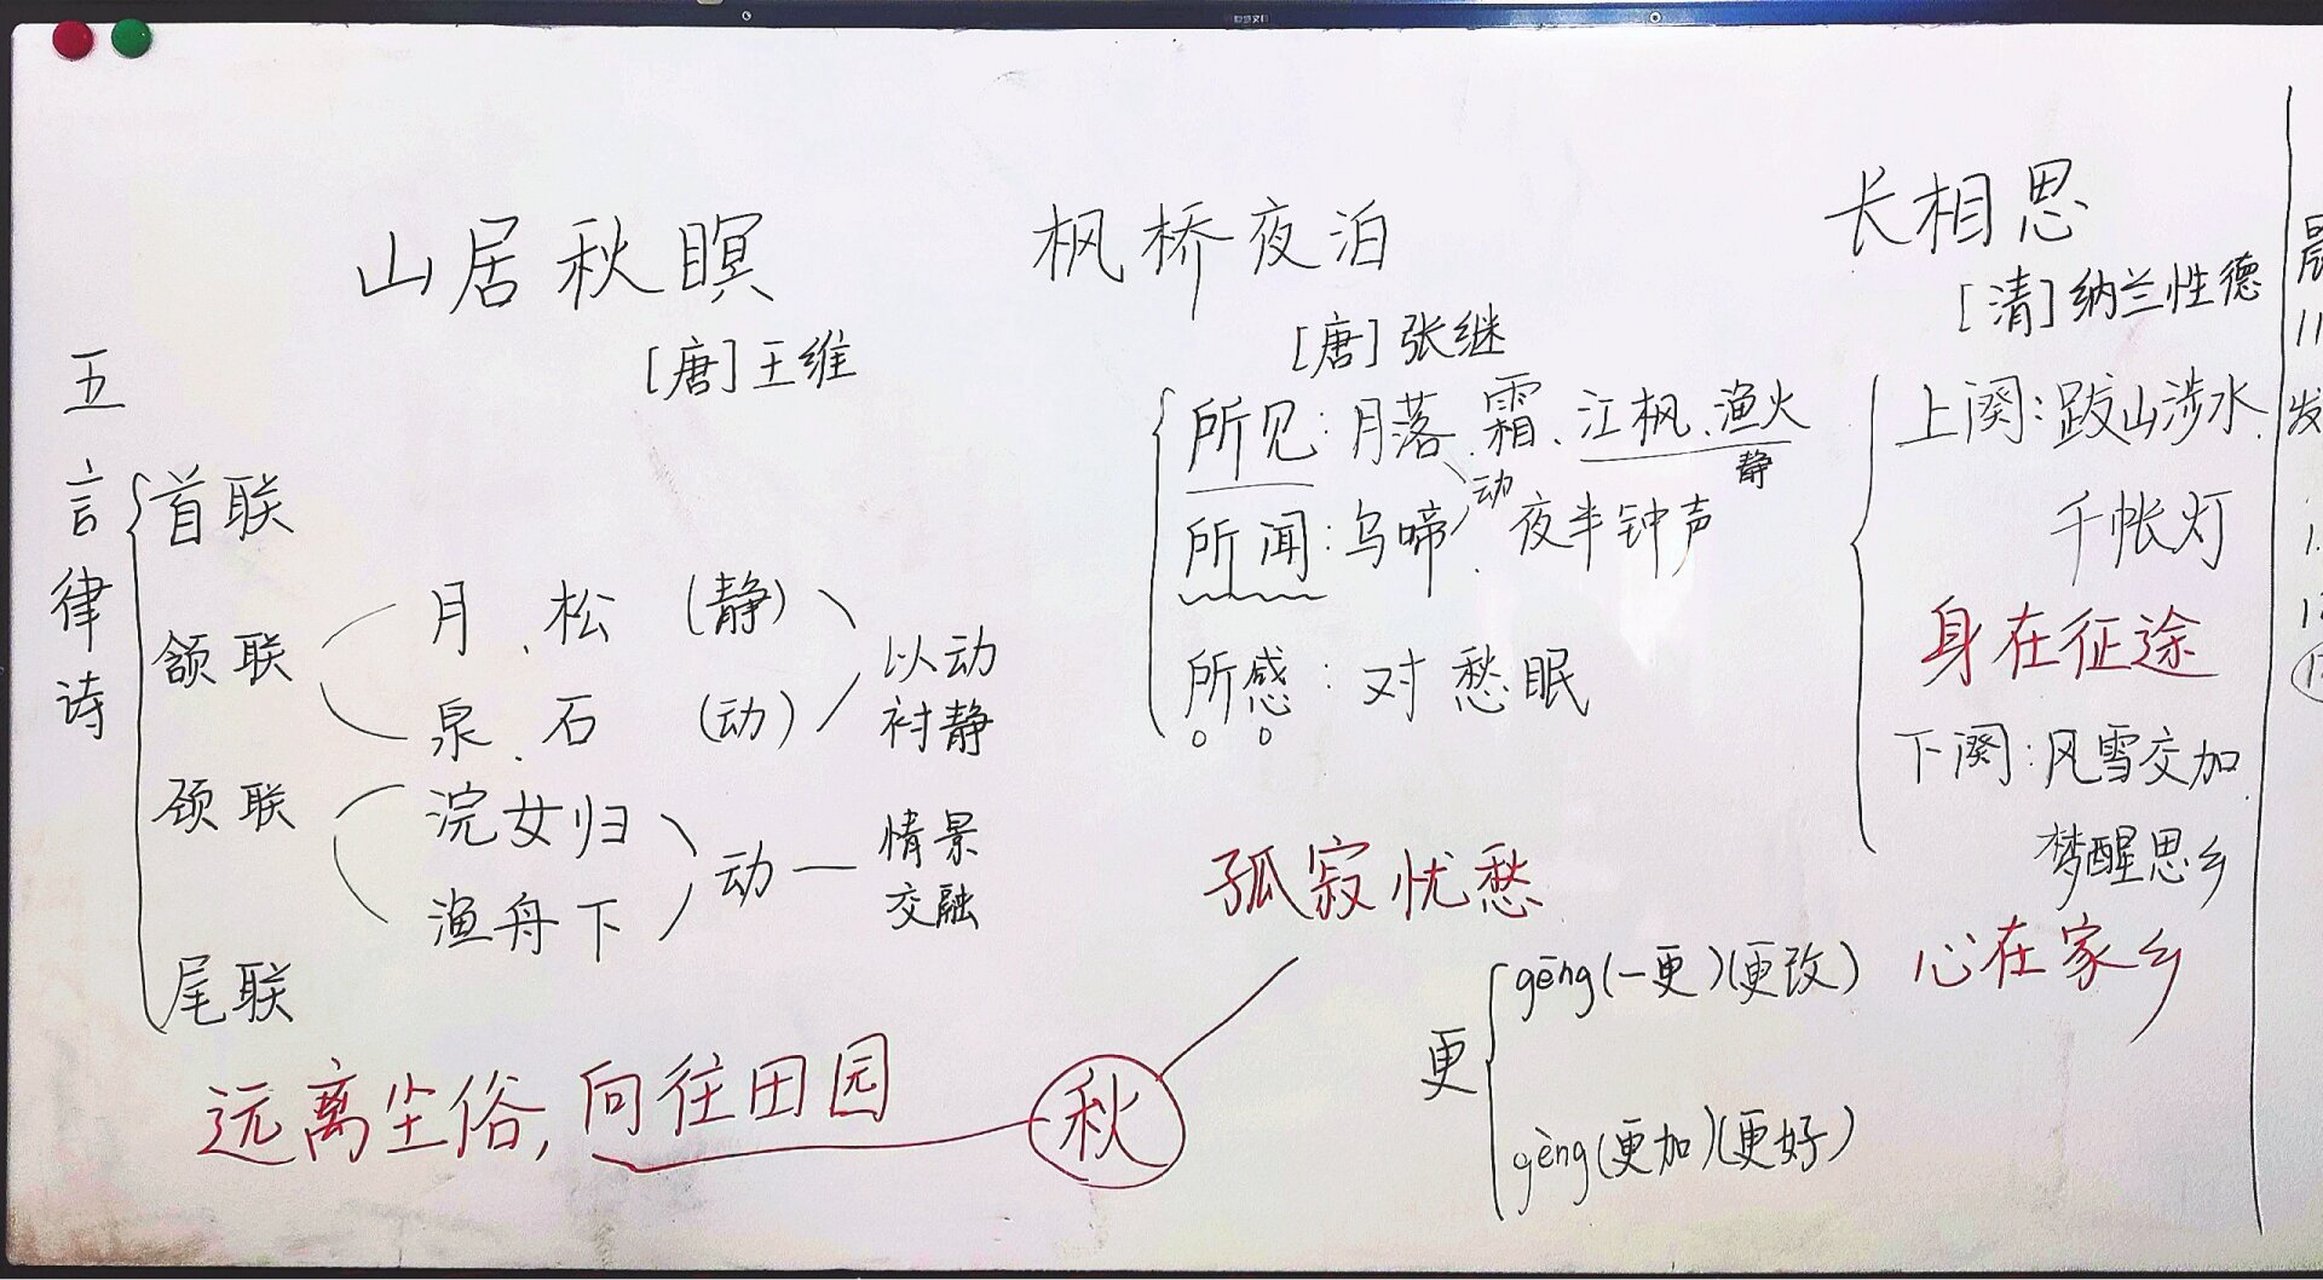 山居秋瞑
[唐]王维
五言律诗
首联
颔联
月、松 (静)
泉、石 (动)
以动
衬静
颈联
浣女归
渔舟下
动—情景
交融
尾联
远离尘俗,向往田园
秋
枫桥夜泊
[唐]张继
所见:月落、霜、江枫、渔火
动
静
所闻:乌啼、夜半钟声
所感:对愁眠
孤寂忧愁
更
gēng(一更)(更改)
gèng(更加)(更好)
长相思
[清]纳兰性德
上阕:跋山涉水、
千帐灯
身在征途
下阕:风雪交加、
梦醒思乡
心在家乡